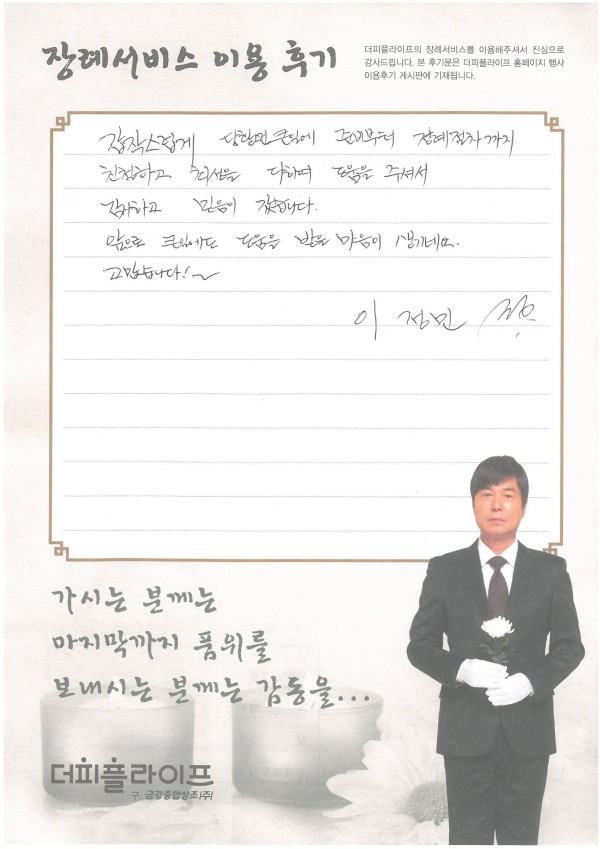 장례서비스 이용 후기
더피플라이프의 장례서비스를 이용해주셔서 진심으로
감사드립니다. 본 후기문은 더피플라이프 홈페이지 행사
이용후기 게시판에 기재됩니다.
갑작스럽게 당황한 큰일에 준비부터 장례절차까지
친절하고 최선을 다하며 도움을 주셔서
감사하고 믿음이 갔습니다.
앞으로 큰일에도 도움을 받을 마음이 생기네요.
고맙습니다!~
이 정민
가시는 분께는
마지막까지 품위를
보내시는 분께는 감동을...
더피플라이프
구. 금강종합상조(주)